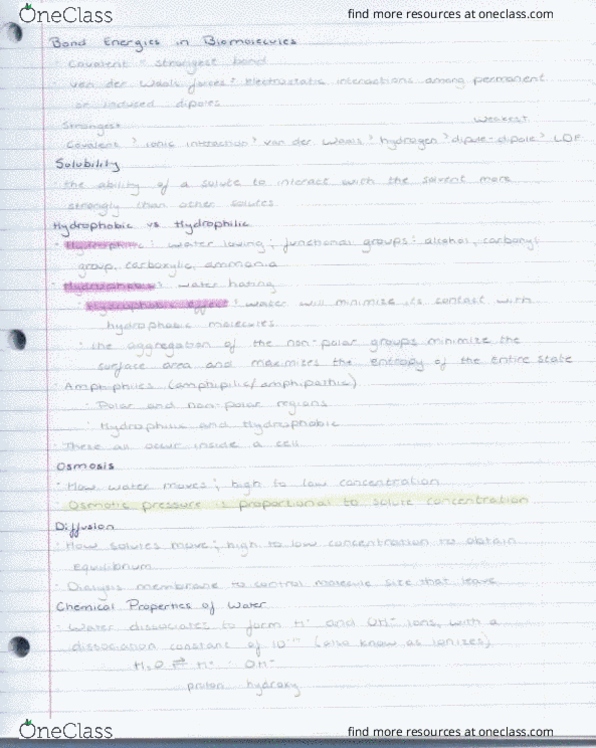 OneClass
find more resources at oneclass.com
Bond Energies in Biomolecules
· Covalent = strongest bond
· van der Waals forces: electrostatic interactions among permanent
or induced dipoles
Strongest weakest
Covalent > ionic interaction > van der Waals > hydrogen > dipole-dipole > LDF
Solubility
· the ability of a solute to interact with the solvent more
strongly than other solutes
Hydrophobic vs Hydrophilic
· Hydrophilic: water loving; functional groups: alcohol, carbonyl
group, carboxylic, ammonia
· water hating
· Hydrophobic effect: water will minimize its contact with
hydrophobic molecules
· the aggregation of the non-polar groups minimize the
surface area and maximizes the entropy of the entire state
· Amphiphiles (amphiphilic/amphipathic)
· Polar and non-polar regions
· Hydrophilic and Hydrophobic
· These all occur inside a cell
Osmosis
· How water moves; high to low concentration
· Osmotic pressure is proportional to solute concentration
Diffusion
· How solutes move; high to low concentration to obtain
equilibrium
· Dialysis membrane to control molecule size that leave
Chemical Properties of Water
· Water dissociates to form H⁺ and OH⁻ ions, with a
dissociation constant of (also know as ionizes)
H₂O ⇌ H⁺ · OH⁻
proton hydroxy
OneClass
find more resources at oneclass.com